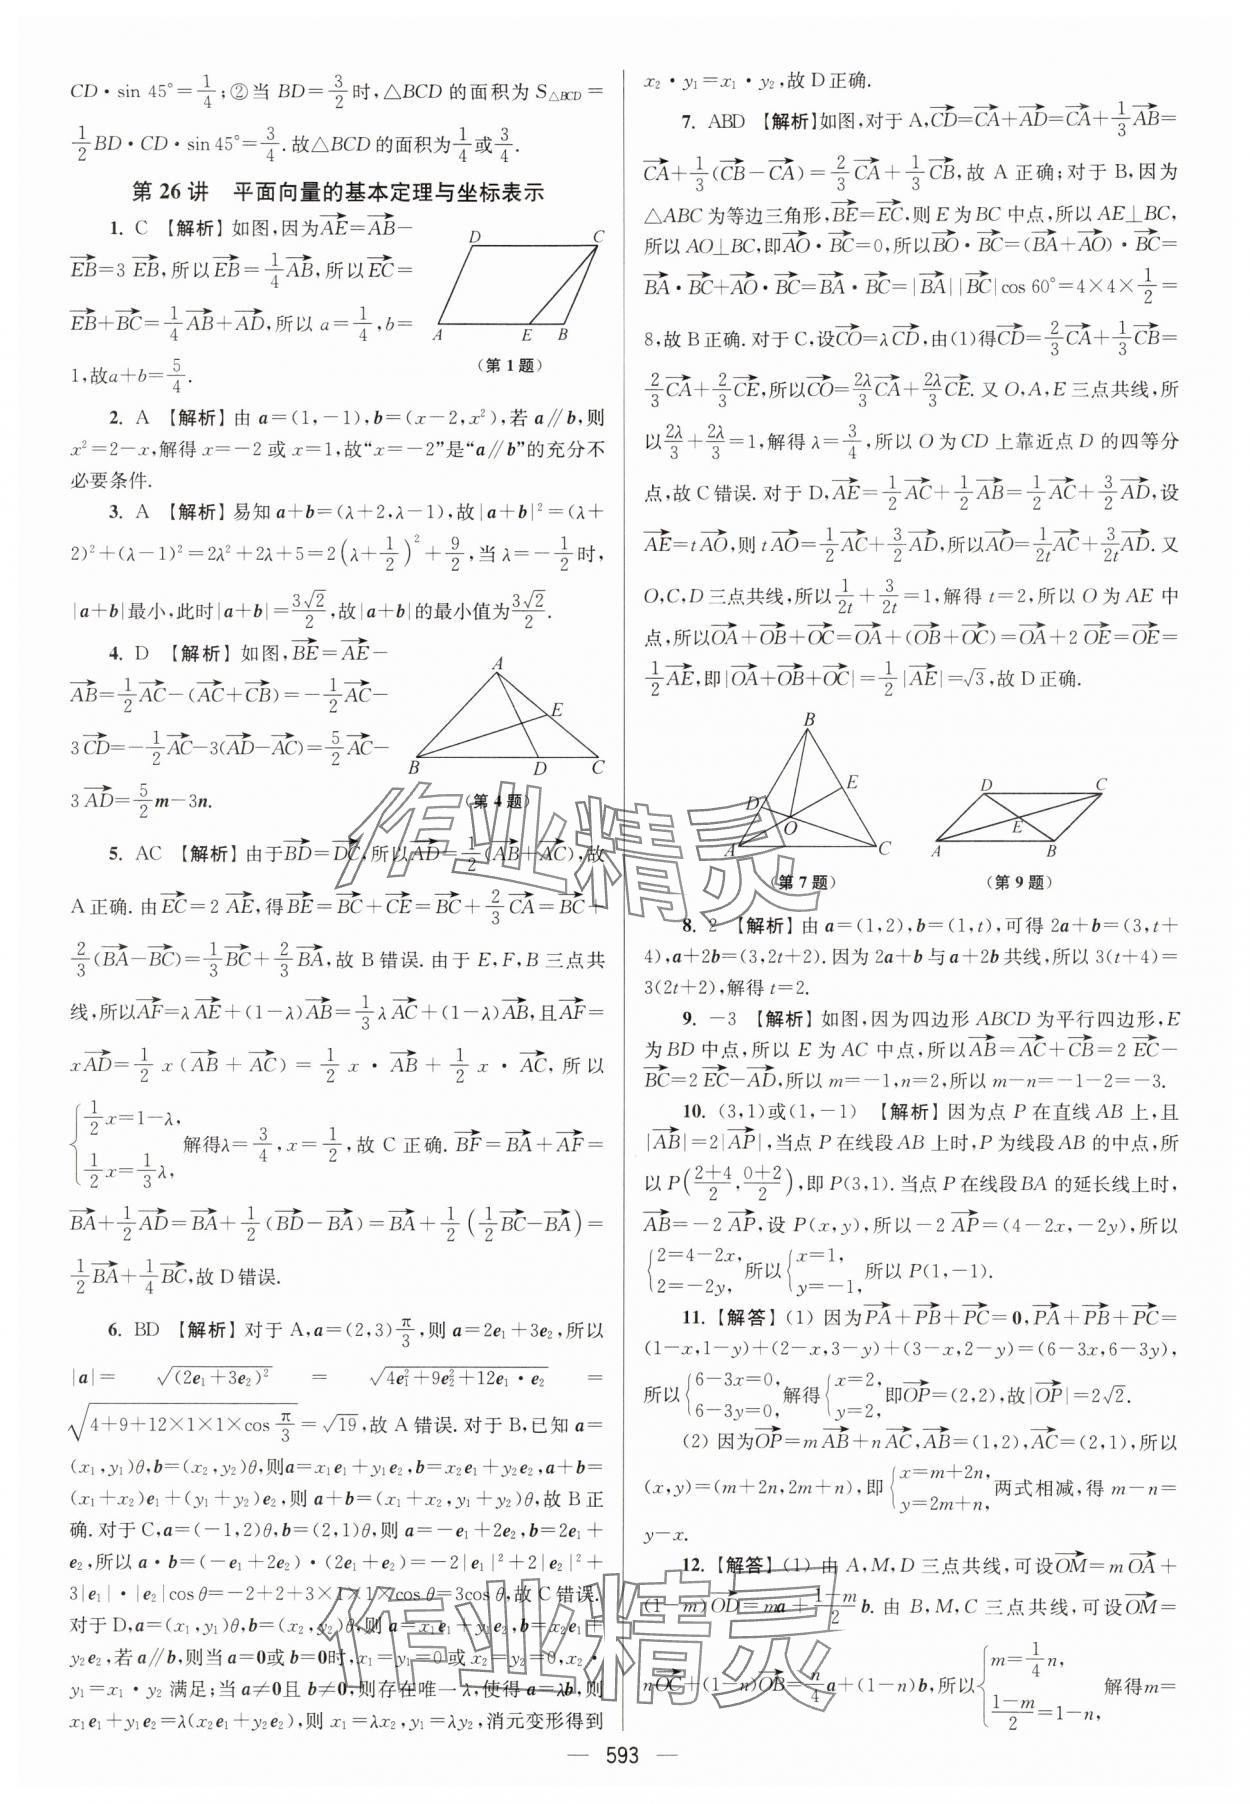 CD·sin 45°=1/4;②当 BD=3/2时,△BCD 的面积为 S△BCD=
1/2 BD·CD·sin 45°=3/4.故△BCD 的面积为1/4或3/4.
第 26 讲　平面向量的基本定理与坐标表示
1. C 【解析】如图,因为AE→=AB→-
EB→=3 EB→,所以EB→=1/4 AB→,所以EC→=
EB→+BC→=1/4 AB→+AD→,所以 a=1/4,b=
1,故a+b=5/4.
D C A E B
(第 1 题)
2. A 【解析】由 a=(1,-1),b=(x-2,x²),若 a∥b,则
x²=2-x,解得 x=-2 或 x=1,故“x=-2”是“a∥b”的充分不
必要条件.
3. A 【解析】易知 a+b=(λ+2,λ-1),故|a+b|²=(λ+
2)²+(λ-1)²=2λ²+2λ+5=2(λ+1/2)²+9/2,当 λ=-1/2时,
|a+b|最小,此时|a+b|=3√2/2,故|a+b|的最小值为3√2/2.
4. D 【解析】如图,BE→=AE→-
AB→=1/2 AC→-(AC→+CB→)=-1/2 AC→-
3 CD→=-1/2 AC→-3(AD→-AC→)=5/2 AC→-
3 AD→=5/2 m-3n.
A E B D C
(第 4 题)
5. AC 【解析】由于BD→=DC→,所以AD→=1/2(AB→+AC→),故
A 正确.由EC→=2 AE→,得BE→=BC→+CE→=BC→+2/3 CA→=BC→+
2/3(BA→-BC→)=1/3 BC→+2/3 BA→,故 B 错误. 由于 E,F,B 三点共
线,所以AF→=λ AE→+(1-λ)AB→=1/3 λ AC→+(1-λ)AB→,且AF→=
x AD→=1/2 x(AB→+AC→)=1/2 x·AB→+1/2 x·AC→,所以
{1/2 x=1-λ, 1/2 x=1/3 λ, 解得λ=3/4,x=1/2,故 C 正确. BF→=BA→+AF→=
BA→+1/2 AD→=BA→+1/2(BD→-BA→)=BA→+1/2(1/2 BC→-BA→)=
1/2 BA→+1/4 BC→,故 D 错误.
6. BD 【解析】对于 A,a=(2,3)π/3,则 a=2e₁+3e₂,所以
|a|=√((2e₁+3e₂)²)=√(4e₁²+9e₂²+12e₁·e₂)=
√(4+9+12×1×1×cos π/3)=√19,故 A 错误. 对于 B,已知 a=
(x₁,y₁)θ,b=(x₂,y₂)θ,则a=x₁e₁+y₁e₂,b=x₂e₁+y₂e₂,a+b=
(x₁+x₂)e₁+(y₁+y₂)e₂,则 a+b=(x₁+x₂,y₁+y₂)θ,故 B 正
确. 对于 C,a=(-1,2)θ,b=(2,1)θ,则 a=-e₁+2e₂,b=2e₁+
e₂,所以 a·b=(-e₁+2e₂)·(2e₁+e₂)=-2|e₁|²+2|e₂|²+
3|e₁|·|e₂|cos θ=-2+2+3×1×1×cos θ=3cos θ,故 C 错误.
对于 D,a=(x₁,y₁)θ,b=(x₂,y₂)θ,则 a=x₁e₁+y₁e₂,b=x₂e₁+
y₂e₂,若 a∥b,则当 a=0或 b=0时,x₁=y₁=0 或 x₂=y₂=0,x₂·
y₁=x₁·y₂ 满足;当 a≠0且 b≠0,则存在唯一 λ,使得 a=λb,则
x₁e₁+y₁e₂=λ(x₂e₁+y₂e₂),则 x₁=λx₂,y₁=λy₂,消元变形得到
x₂·y₁=x₁·y₂,故 D 正确.
7. ABD 【解析】如图,对于 A,CD→=CA→+AD→=CA→+1/3 AB→=
CA→+1/3(CB→-CA→)=2/3 CA→+1/3 CB→,故 A 正确;对于 B,因为
△ABC 为等边三角形,BE→=EC→,则 E 为 BC 中点,所以 AE⊥BC,
所以 AO⊥BC,即AO→·BC→=0,所以BO→·BC→=(BA→+AO→)·BC→=
BA→·BC→+AO→·BC→=BA→·BC→=|BA→||BC→|cos 60°=4×4×1/2=
8,故 B 正确. 对于 C,设CO→=λ CD→,由(1)得CD→=2/3 CA→+1/3 CB→=
2/3 CA→+2/3 CE→,所以CO→=2λ/3 CA→+2λ/3 CE→. 又 O,A,E 三点共线,所
以2λ/3+2λ/3=1,解得 λ=3/4,所以 O 为 CD 上靠近点 D 的四等分
点,故 C 错误. 对于 D,AE→=1/2 AC→+1/2 AB→=1/2 AC→+3/2 AD→,设
AE→=t AO→,则 t AO→=1/2 AC→+3/2 AD→,所以AO→=1/2t AC→+3/2t AD→. 又
O,C,D 三点共线,所以1/2t+3/2t=1,解得 t=2,所以 O 为 AE 中
点,所以OA→+OB→+OC→=OA→+(OB→+OC→)=OA→+2 OE→=OE→=
1/2 AE→,即|OA→+OB→+OC→|=1/2|AE→|=√3,故 D 正确.
B E D O A C
(第 7 题)
D C E A B
(第 9 题)
8. 2 【解析】由 a=(1,2),b=(1,t),可得 2a+b=(3,t+
4),a+2b=(3,2t+2). 因为 2a+b 与 a+2b 共线,所以 3(t+4)=
3(2t+2),解得 t=2.
9. -3 【解析】如图,因为四边形 ABCD 为平行四边形,E
为 BD 中点,所以 E 为 AC 中点,所以AB→=AC→+CB→=2 EC→-
BC→=2 EC→-AD→,所以 m=-1,n=2,所以 m-n=-1-2=-3.
10. (3,1)或(1,-1) 【解析】因为点 P 在直线 AB 上,且
|AB→|=2|AP→|,当点 P 在线段 AB 上时,P 为线段 AB 的中点,所
以 P((2+4)/2,(0+2)/2),即 P(3,1). 当点 P 在线段 BA 的延长线上时,
AB→=-2 AP→,设 P(x,y),所以-2 AP→=(4-2x,-2y),所以
{2=4-2x, 2=-2y, 所以{x=1, y=-1, 所以 P(1,-1).
11. 【解答】(1) 因为PA→+PB→+PC→=0,PA→+PB→+PC→=
(1-x,1-y)+(2-x,3-y)+(3-x,2-y)=(6-3x,6-3y),
所以{6-3x=0, 6-3y=0, 解得{x=2, y=2, 即OP→=(2,2),故|OP→|=2√2.
(2) 因为OP→=m AB→+n AC→,AB→=(1,2),AC→=(2,1),所以
(x,y)=(m+2n,2m+n),即{x=m+2n, y=2m+n, 两式相减,得 m-n=
y-x.
12. 【解答】(1) 由 A,M,D 三点共线,可设OM→=m OA→+
(1-m)OD→=ma+(1-m)/2 b. 由 B,M,C 三点共线,可设OM→=
nOC→+(1-n)OB→=n/4 a+(1-n)b,所以{m=1/4 n, (1-m)/2=1-n, 解得m=
— 593 —
作业精灵
作业精灵